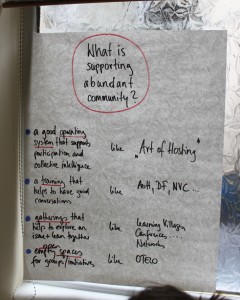 What is
supporting
abundant
community?
a good operating
system that supports
participation and
collective intelligence
like
"Art of Hosting"
a training that
helps to have good
conversations
like
AoH, DF, NVC...
gatherings that
help to explore an
issue + learn together
like
Learning Villages
Conferences....
Networks
open
empty spaces
for groups/initiatives
like
OTELO